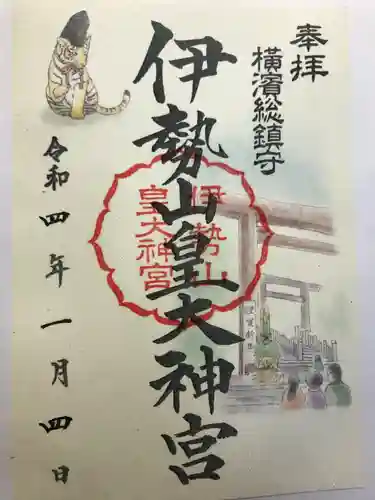 奉拝
横濱総鎮守
伊勢山皇大神宮
伊勢山
皇大神宮
令和四年一月四日